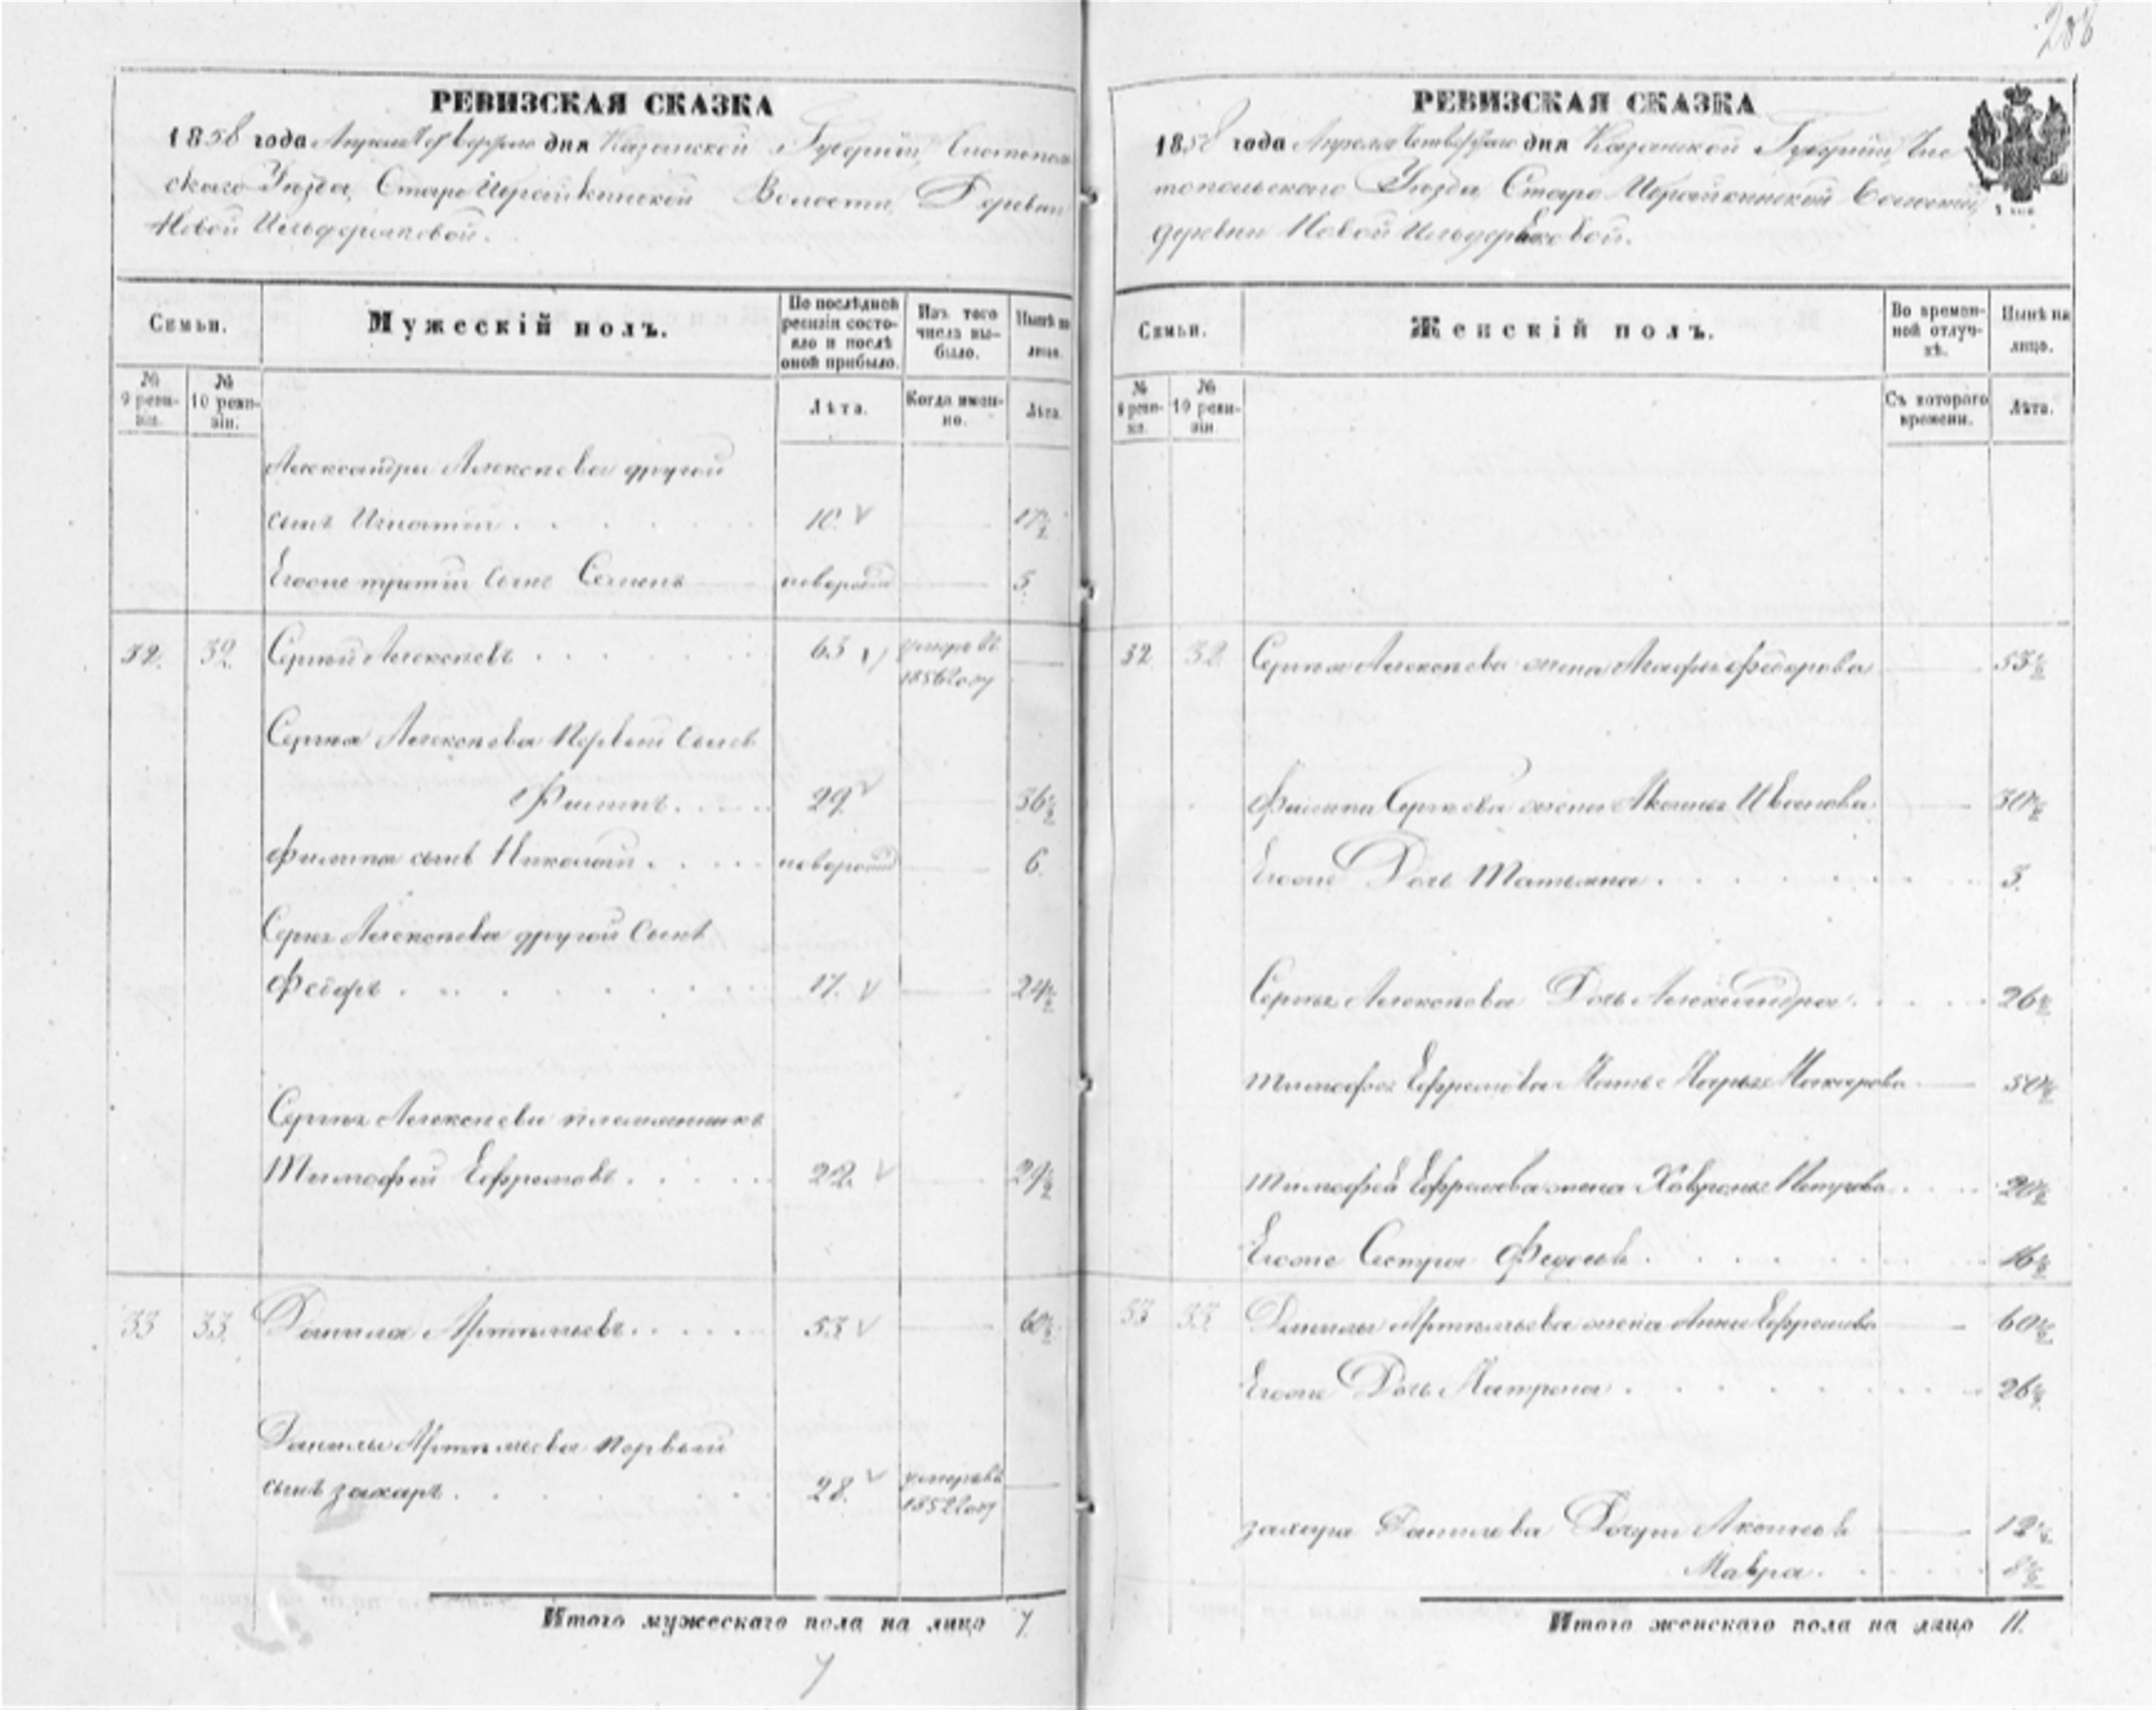 288
РЕВИЗСКАЯ СКАЗКА
1858 года Апреля Четвертого дня Казанской Губернии, Чистополь-
скаго Уезда, Старо Ибрайкинской Волости, Деревни
Новой Ильдеряковой.
Семьи.
Мужескій полъ.
По послѣдней ревизіи состо-яло и послѣ оной прибыло.
Изъ того числа вы-было.
Нынѣ на лицо.
№ 9 реви-зіи.
№ 10 реви-зіи.
Лѣта.
Когда имен-но.
Лѣта.
Александры Алексѣева другой
сынъ Игнатей . . . . . 10. 17½
Егоже третій сынъ Семенъ новорожд 5.
32. 32. Сергѣй Алексѣевъ . . . . . 65 умеръ въ
1856 году
Сергѣя Алексѣева Первый сынъ
Филипъ . . . . 29. 36½
Филипа сынъ Николай . . . . новорожд 6.
Сергѣя Алексѣева другой Сынъ
Федоръ . . . . . 17. 24½
Сергѣя Алексѣева племянникъ
Тимофей Ефремовъ . . . . 22. 29½
33 33. Данила Артемьевъ . . . . 53 60½
Данилы Артемьева первый
сынъ Захаръ . . . . 28. умеръ въ
1852 году
Итого мужескаго пола на лицо 7.
7
РЕВИЗСКАЯ СКАЗКА
1858 года Апреля Четвертаго дня Казанской Губерніи, Чис
топольскаго Уезда, Старо Ибрайкинской Волости,
деревни Новой Ильдеряковой.
Семьи.
Женскій полъ.
Во времен-ной отлуч-кѣ.
Нынѣ на лицо.
№ 9 реви-зіи.
№ 10 реви-зіи.
Съ котораго времени.
Лѣта.
32 32. Сергѣя Алексѣева жена Агафья Федорова 53½
Филипа Сергѣева жена Акулина Иванова 30½
Егоже Дочь Татьяна . . . . . 3.
Сергѣя Алексѣева Дочь Александра . . . . 26½
Тимофея Ефремова Мать Марья Макарова 50½
Тимофея Ефремова жена Хавронья Петрова . . . 20½
Егоже Сестра Федосья . . . . . 16½
33 33. Данилы Артемьева жена Анна Ефремова 60½
Егоже Дочь Матрена . . . . . 26½
Захара Данилова Дочери Аксинья 12½
Мавра . . . . 8½
Итого женскаго пола на лицо 11.